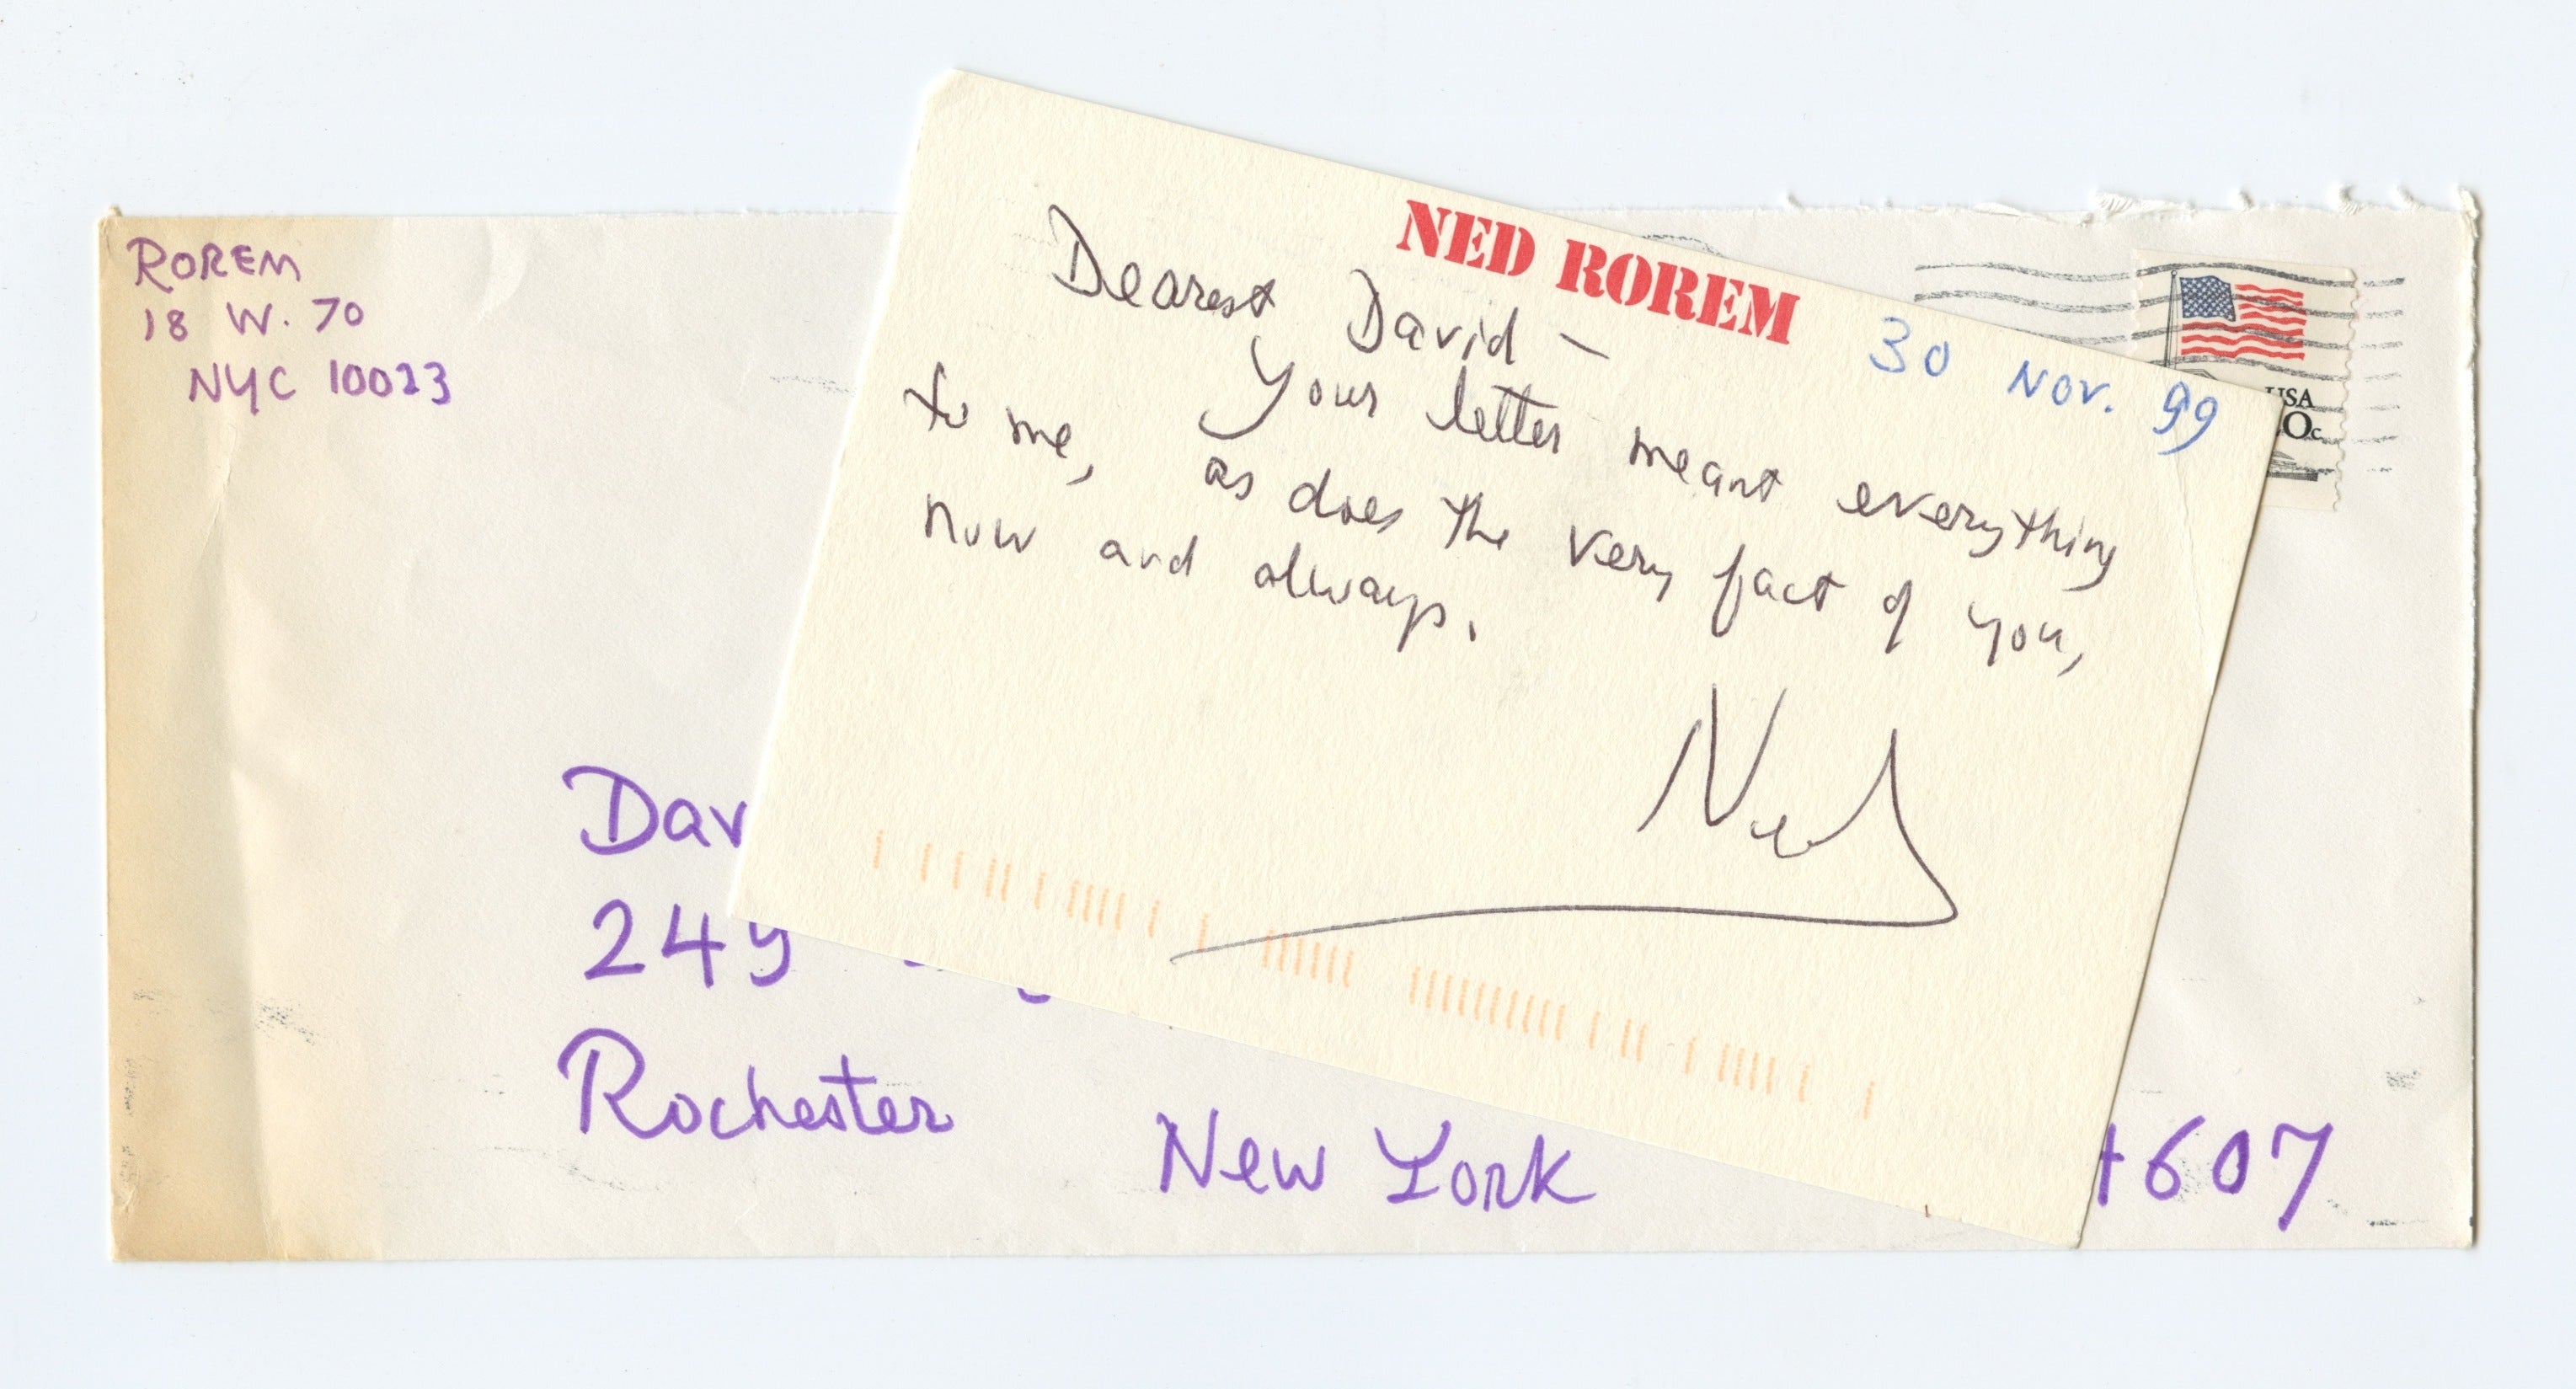 ROREM
18 W. 70
NYC 10023
NED ROREM
30 Nov. 99
Dearest David –
Your letter meant everything
to me, as does the very fact of you,
now and always.
Ned
USA
Dav
249
Rochester
New York
607